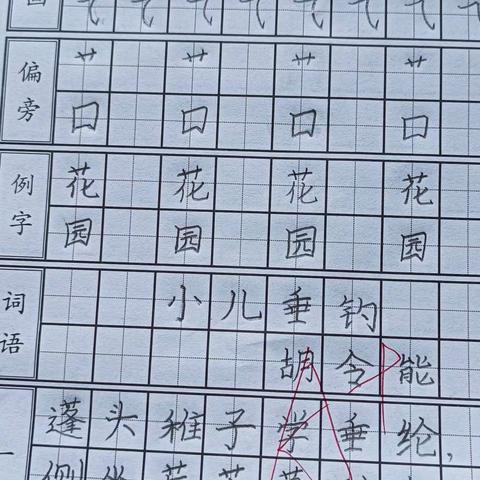 偏旁
艹 艹 艹 艹
口 口 口 口
例字
花 花 花 花
园 园 园 园
词语
小儿垂钓
胡令能
蓬头稚子学垂纶，